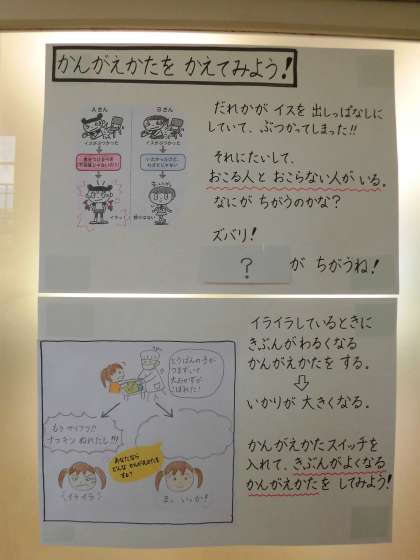 かんがえかたを かえてみよう!
Aさん
Bさん
イスがぶつかった
イスがぶつかった
イラッ
だれかが イスを 出しっぱなしに
していて、ぶつかってしまった!!
それにたいして、
おこる人と おこらない人が いる。
なにが ちがうのかな?
ズバリ!
? が ちがうね!
とうばんの子が
つまずいて
大おかずが
こぼれた!
もう サイアク!!
ナフキン ぬれたし!!!
あなたなら
どんな かんがえかたを
する?
イライラ
ま、いっか!
イライラしているときに
きぶんがわるくなる
かんがえかたを する。
⇩
いかりが 大きくなる。
かんがえかたスイッチを
入れて、きぶんがよくなる
かんがえかたを してみよう!